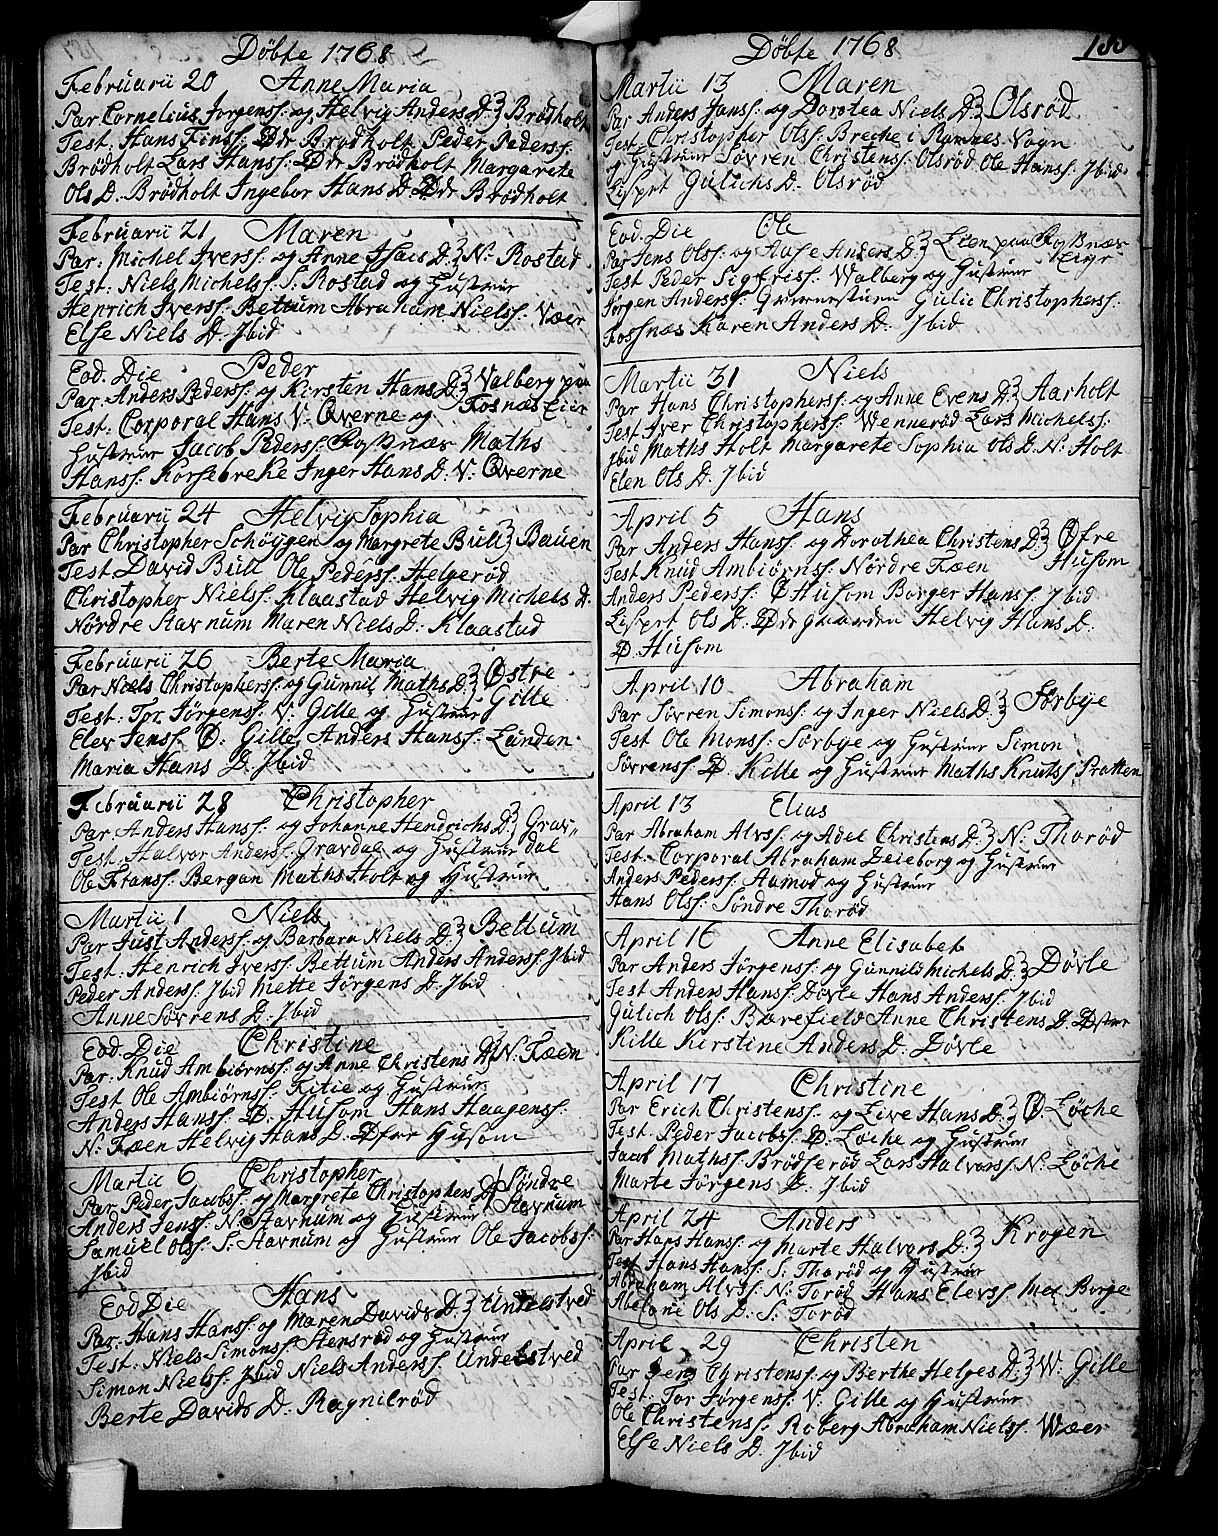 Döbte 1768
Februarii 20 Anne Maria
Par Cornelius Jorgenss: og Helvig Anders D. Brödholt
Test. Hans Finss. Ødr Brödholt Peder Pederss:
Brödholt Lars Hanss: Ødr Brödholt Margarete
Ols D. Brödholt Ingebor Hans D. Ødr Brödholt
Februarii 21 Maren
Par: Michel Iverss: og Anne Isacs D. N. Rostad
Test: Niels Michelss. S. Rostad og Hustrue
Henrich Iverss: Bettum Abraham Nielss: Væer
Else Niels D. Ibid
Eod. Die Peder
Par. Anders Pederss: og Kirsten Hans D. Valberg paa
Test: Corporal Hans V: Qverne og Fosnæs Eier
Hustrue Jacob Pederss: Fossnæs Maths
Hanss: Korsebreke Inger Hans D. V: Qverne
Februarii 24 Helvig Sophia
Par Christopher Schöygen og Margrete Bull Bauen
Test David Bull Ole Pederss: Helgeröd
Christopher Nielss: Klaastad Helvig Michels D.
Nördre Stavnum Maren Niels D. Klaastad
Februarii 26 Berte Maria
Par Niels Christopherss: og Gunnil Maths D. Østre
Test: Tor Jörgenss: V: Gille og Hustrue Gille
Elev Jenss Ø: Gille Anders Hanss: Lunden
Maria Hans D. Ibid
Februarii 28 Christopher
Par Anders Hanss: og Johanne Hendrichs D. Grav„
Test. Halvor Anderss: Gravdal og Hustrue dal
Ole Franss: Bergan Maths Holt og Hustrue
Martii 1 Niels
Par Just Anderss: og Barbara Niels D. Bettum
Test: Henrich Iverss: Bettum Anders Anderss: Ibid
Peder Anderss: Ibid Mette Jörgens D. Ibid
Anne Sövrens D. Ibid
Eod. Die Christine
Par: Knud Ambiörnss: og Anne Christens D. N. Fæen
Test Ole Ambiörnss: Fitie og Hustrue
Anders Hanss: Ø. Husom Hans Haagenss:
N. Fæen Helvig Hans D. Øfre Husom
Martii 6 Christopher
Par Peder Jacobss: og Margrete Christophers D. Söndre
Anders Jenss: N. Stavnum og Hustrue Stavnum
Samuel Olss: S: Stavnum og Hustrue Ole Jacobss:
Ibid
Eod Die Hans
Par. Hans Hanss: og Maren Davids D. Undelstved
Test: Niels Simonss: Stensröd og Hustrue
Simon Nielss: Ibid Niels Anderss: Undelstved
Berte Davids D. Ragnilröd
Döbte 1768
Martii 13 Maren
Par Anders Janss: og Dorotea Niels D. Olsröd
Test. Christopher Olss: Breche i Ramnes Sogn
og Hustrue Sövren Christenss: Olsröd Ole Hanss: Ibid
Lispet Gulichs D. Olsröd
Eod. Die Ole
Par Jens Olss: og Aase Anders D. Lien paa Fossnæs
Test Peder Sigfriss: Walberg og Hustrue Eigr
Jörgen Anderss: Gulic Christopherss:
Fossnæs Karen Anders D. Ibid
Martii 31 Niels
Par Hans Christopherss: og Anne Evens D. Aarholt
Test Iver Christopherss: Wenneröd Lars Michelss:
Ibid Maths Holt Margarete Sophia Ols D. N: Holt
Elen Ols D. Ibid
April 5 Hans
Par Anders Hanss: og Dorothea Christens D. Øfre
Test Knud Ambiörnss: Nördre Fæen Husom
Anders Pederss: Ø Husom Borger Hanss: Ibid
Lispet Ols D. Ødegaarden Helvig Hans D.
Ø. Husom
April 10 Abraham
Par Sövren Simonss: og Inger Niels D. Sörbye
Test Ole Monss: Sörbye og Hustrue Simon
Sövrenss Ø. Kille og Hustrue Maths Knutss Pratten
April 13 Elias
Par Abraham Alvss: og Adel Christens D. N: Thoröd
Test: Corporal Abraham Leieborg og Hustrue
Anders Pederss: Aamod og Hustrue
Hans Olss: Söndre Thoröd
April 16 Anne Elisabet
Par Anders Jörgenss: og Gunnild Michels D. Dövle
Test Anders Hanss: Dövle Hans Anderss: Ibid
Gulich Olss: Barefield Anne Christens D. Østre
Kille Kirstine Anders D. Dövle
April 17 Christine
Par Erich Christenss: og Live Hans D. Ø. Löche
Test. Peder Jacobss: Ø. Löche og Hustrue
Jacob Mathss: Brödseröd Lars Halvorss: N: Löche
Marte Jörgens D. Ibid
April 24 Anders
Par Hans Hanss: og Marte Halvors D. Krogen
Test Hans Hanss: S: Thoröd og Hustrue
Abraham Alvss: N: Toröd Hans Elevss Mel Borge
Abelone Ols D. S. Toröd
April 29 Christen
Par Jens Christenss: og Berthe Helges D. W: Gille
Test: Tor Jörgenss: V: Gille og Hustrue
Ole Christenss: Roberg Abraham Nielss: Wæer
Else Niels D. Ibid